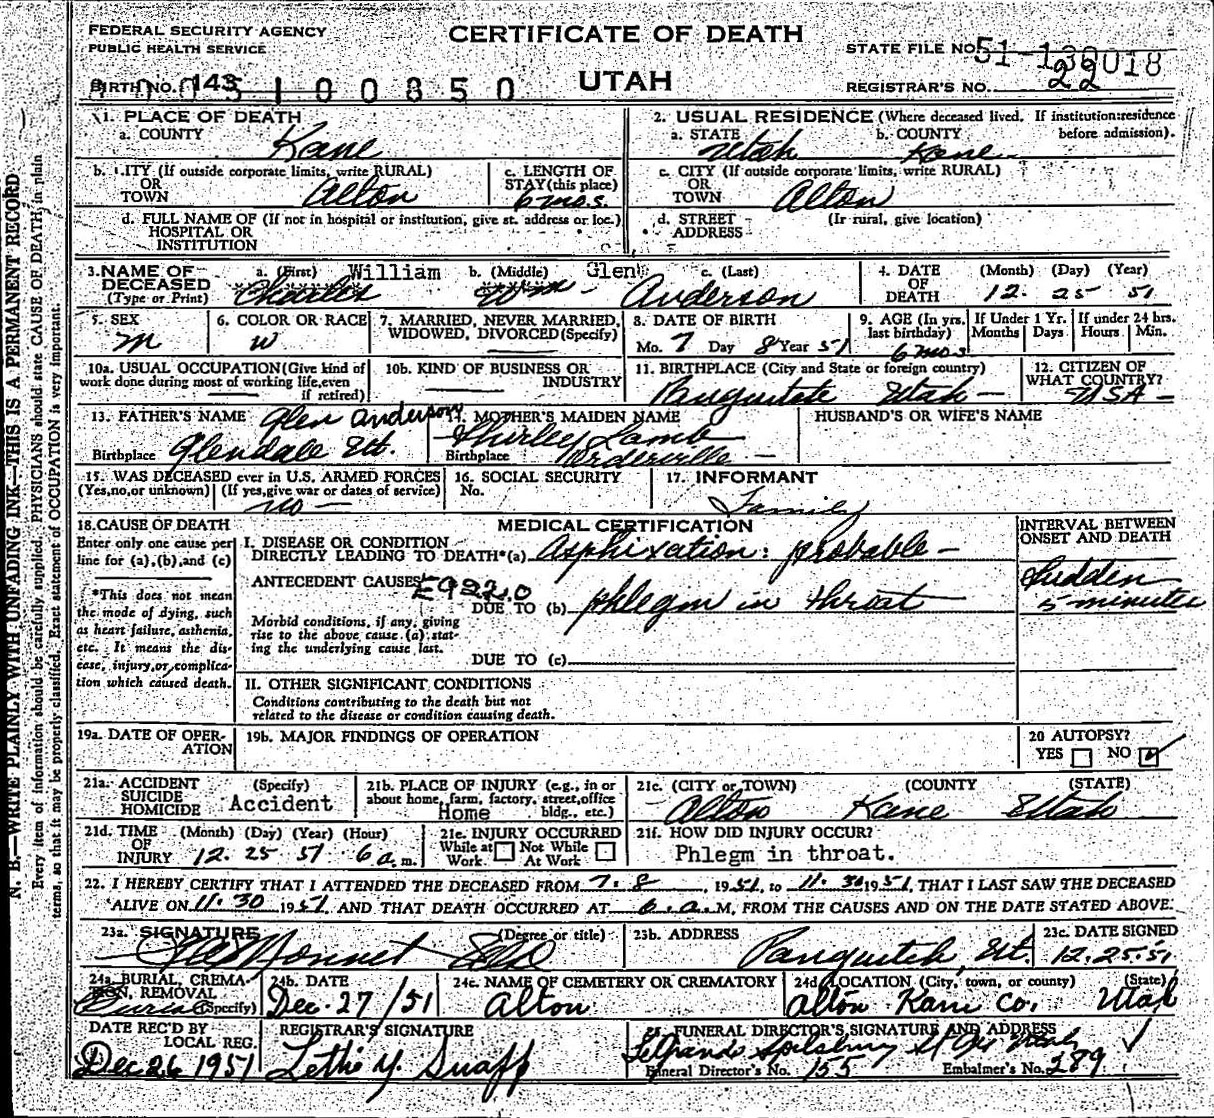 FEDERAL SECURITY AGENCY
PUBLIC HEALTH SERVICE
CERTIFICATE OF DEATH
UTAH
STATE FILE NO. 51-130018
BIRTH NO. 143 5100850
REGISTRAR'S NO. 22
1. PLACE OF DEATH
a. COUNTY Kane
2. USUAL RESIDENCE (Where deceased lived. If institution: residence before admission).
a. STATE Utah b. COUNTY Kane
b. CITY (If outside corporate limits, write RURAL)
OR
TOWN Alton
c. LENGTH OF
STAY (this place)
6 mos.
c. CITY (If outside corporate limits, write RURAL)
OR
TOWN Alton
d. FULL NAME OF (If not in hospital or institution, give st. address or loc.)
HOSPITAL OR
INSTITUTION
d. STREET (If rural, give location)
ADDRESS
3. NAME OF
DECEASED
(Type or Print)
a. (First) William b. (Middle) Glen c. (Last)
Charles Wm Anderson
4. DATE
OF
DEATH
(Month) (Day) (Year)
12 25 51
5. SEX
M
6. COLOR OR RACE
W
7. MARRIED, NEVER MARRIED,
WIDOWED, DIVORCED (Specify)
8. DATE OF BIRTH
Mo. 7 Day 8 Year 51
9. AGE (In yrs. last birthday)
6 mos
If Under 1 Yr. Months Days
If under 24 hrs. Hours Min.
10a. USUAL OCCUPATION (Give kind of
work done during most of working life, even
if retired)
10b. KIND OF BUSINESS OR
INDUSTRY
11. BIRTHPLACE (City and State or foreign country)
Panguitch Utah
12. CITIZEN OF
WHAT COUNTRY?
USA
13. FATHER'S NAME Glen Anderson
Birthplace Glendale Ut.
14. MOTHER'S MAIDEN NAME
Shirley Lamb
Birthplace Orderville
HUSBAND'S OR WIFE'S NAME
15. WAS DECEASED ever in U.S. ARMED FORCES
(Yes, no, or unknown) (If yes, give war or dates of service)
no
16. SOCIAL SECURITY
No.
17. INFORMANT
Family
18. CAUSE OF DEATH
Enter only one cause per
line for (a), (b), and (c)
*This does not mean
the mode of dying, such
as heart failure, asthenia,
etc. It means the dis-
ease, injury, or complica-
tion which caused death.
MEDICAL CERTIFICATION
I. DISEASE OR CONDITION
DIRECTLY LEADING TO DEATH* (a) Asphixation: probable
ANTECEDENT CAUSES E922.0
DUE TO (b) phlegm in throat
Morbid conditions, if any, giving
rise to the above cause (a) stat-
ing the underlying cause last.
DUE TO (c)
INTERVAL BETWEEN
ONSET AND DEATH
Sudden
5 minutes
II. OTHER SIGNIFICANT CONDITIONS
Conditions contributing to the death but not
related to the disease or condition causing death.
19a. DATE OF OPER-
ATION
19b. MAJOR FINDINGS OF OPERATION
20 AUTOPSY?
YES NO
21a. ACCIDENT (Specify)
SUICIDE
HOMICIDE Accident
21b. PLACE OF INJURY (e.g., in or
about home, farm, factory, street, office
bldg., etc.)
Home
21c. (CITY or TOWN) (COUNTY (STATE)
Alton Kane Utah
21d. TIME (Month) (Day) (Year) (Hour)
OF
INJURY 12 25 51 6 a.m.
21e. INJURY OCCURRED
While at Work Not While At Work
21f. HOW DID INJURY OCCUR?
Phlegm in throat.
22. I HEREBY CERTIFY THAT I ATTENDED THE DECEASED FROM 7.8, 1951, to 11.30 1951, THAT I LAST SAW THE DECEASED
ALIVE ON 11.30 1951, AND THAT DEATH OCCURRED AT 6. a. M, FROM THE CAUSES AND ON THE DATE STATED ABOVE.
23a. SIGNATURE (Degree or title)
23b. ADDRESS
Panguitch, Ut.
23c. DATE SIGNED
12.25.51
24a. BURIAL, CREMA-
TION, REMOVAL (Specify)
Burial
24b. DATE
Dec. 27/51
24c. NAME OF CEMETERY OR CREMATORY
Alton
24d. LOCATION (City, town, or county) (State)
Alton Kane Co. Utah
DATE REC'D BY
LOCAL REG.
Dec 26 1951
REGISTRAR'S SIGNATURE
25. FUNERAL DIRECTOR'S SIGNATURE AND ADDRESS
Funeral Director's No. 155 Embalmer's No. 289
N. B.—WRITE PLAINLY WITH UNFADING INK—THIS IS A PERMANENT RECORD
Every item of information should be carefully supplied. PHYSICIANS should state CAUSE OF DEATH, in plain
terms, so that it may be properly classified. Exact statement of OCCUPATION is very important.